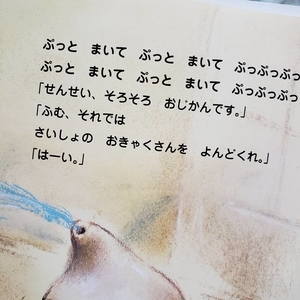 ぷっと　まいて　ぷっと　まいて　ぷっぷっぷっ
ぷっと　まいて　ぷっと　まいて　ぷっぷっぷっ
「せんせい、そろそろ　おじかんです。」
「ふむ、それでは
さいしょの　おきゃくさんを　よんどくれ。」
「はーい。」